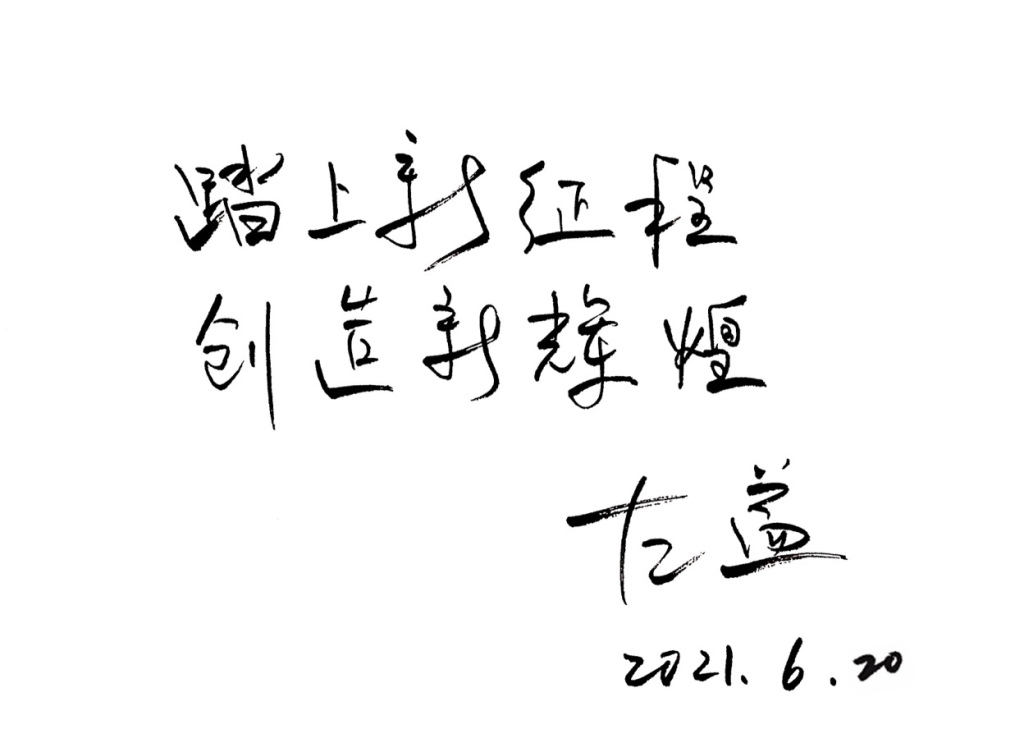 踏上新征程
创造新辉煌
左益
2021.6.20